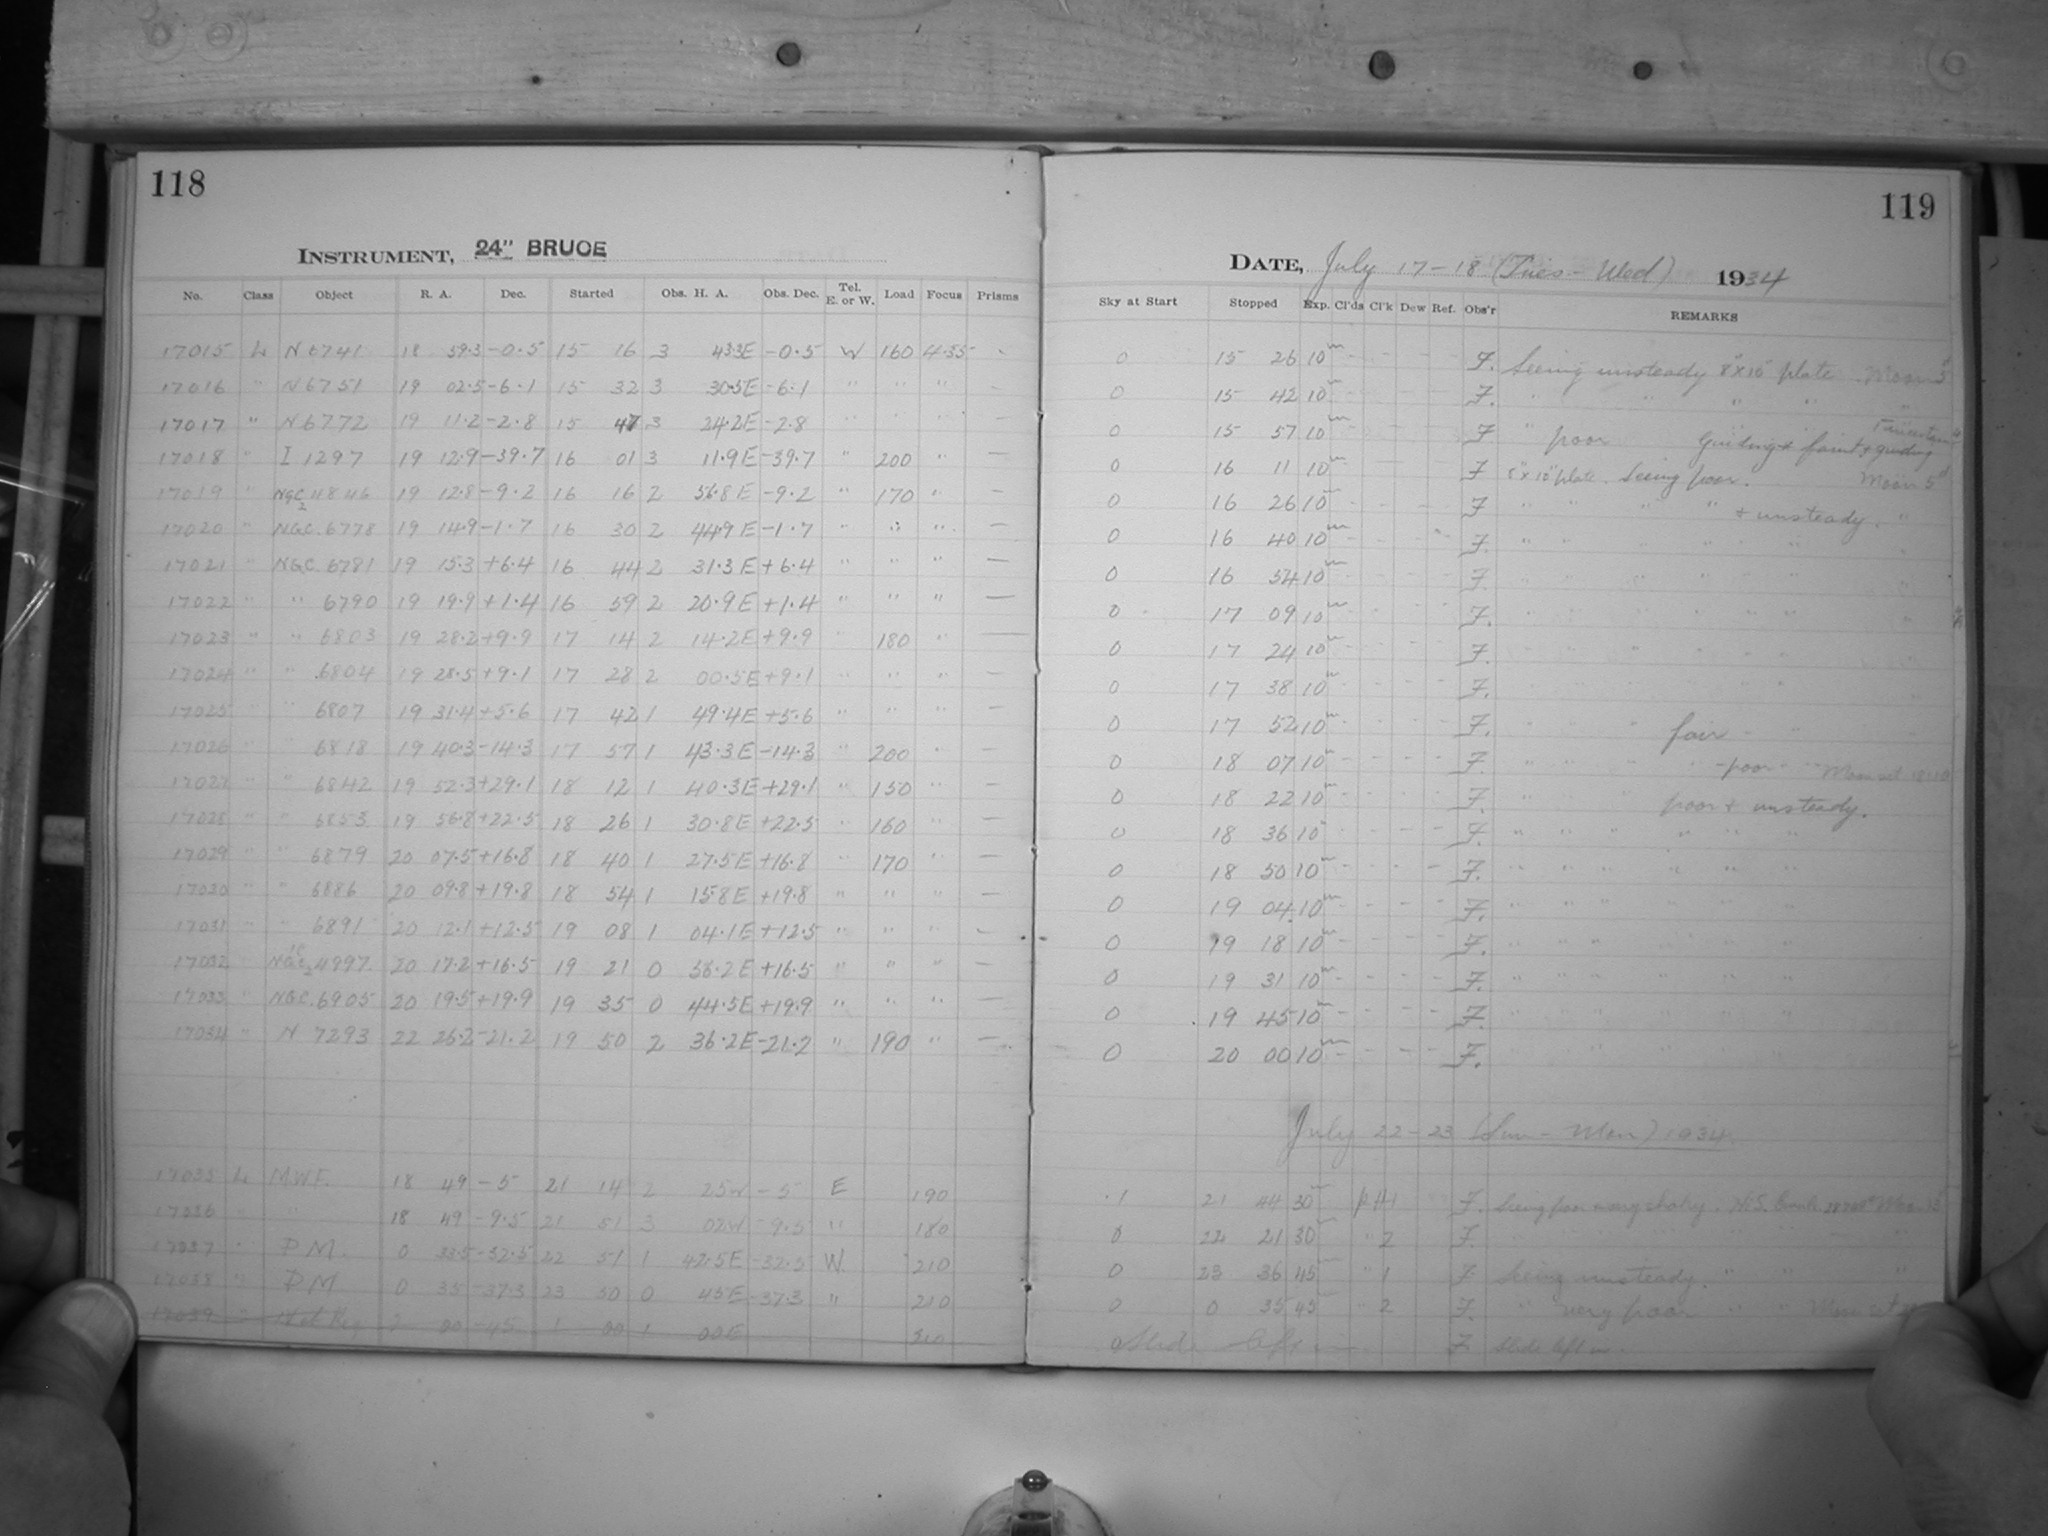 118
INSTRUMENT, 24" BRUCE
No. Class Object R. A. Dec. Started Obs. H. A. Obs. Dec. Tel. E. or W. Load Focus Prisms
17015 L N 6741 18 59.3 -0.5 15 16 3 43.3E -0.5 W 160 4.35 -
17016 " N 6751 19 02.5 -6.1 15 32 3 30.5E -6.1 " " " -
17017 " N 6772 19 11.2 -2.8 15 47 3 24.2E -2.8 " " " -
17018 " I 1297 19 12.9 -39.7 16 01 3 11.9E -39.7 " 200 " -
17019 " 4846 19 12.8 -9.2 16 16 2 56.8E -9.2 " 170 " -
17020 " NGC. 6778 19 14.9 -1.7 16 30 2 44.9E -1.7 " " " -
17021 " NGC. 6781 19 15.3 +6.4 16 44 2 31.3E +6.4 " " " -
17022 " " 6790 19 19.9 +1.4 16 59 2 20.9E +1.4 " " " -
17023 " " 6803 19 28.2 +9.9 17 14 2 14.2E +9.9 " 180 " -
17024 " " 6804 19 28.5 +9.1 17 28 2 00.5E +9.1 " " " -
17025 " " 6807 19 31.4 +5.6 17 42 1 49.4E +5.6 " " " -
17026 " " 6818 19 40.3 -14.3 17 57 1 43.3E -14.3 " 200 " -
17027 " " 6842 19 52.3 +29.1 18 12 1 40.3E +29.1 " 150 " -
17028 " " 6853 19 56.8 +22.5 18 26 1 30.8E +22.5 " 160 " -
17029 " " 6879 20 07.5 +16.8 18 40 1 27.5E +16.8 " 170 " -
17030 " " 6886 20 09.8 +19.8 18 54 1 15.8E +19.8 " " " -
17031 " " 6891 20 12.1 +12.5 19 08 1 04.1E +12.5 " " " -
17032 " 4997 20 17.2 +16.5 19 21 0 56.2E +16.5 " " " -
17033 " NGC. 6905 20 19.5 +19.9 19 35 0 44.5E +19.9 " " " -
17034 " N 7293 22 26.2 -21.2 19 50 2 36.2E -21.2 " 190 " -
17035 L M.W.F. 18 49 -5 21 14 2 25W -5 E 190
17036 " " 18 49 -9.5 21 51 3 02W -9.5 " 180
17037 " P M. 0 33.5 -32.5 22 51 1 42.5E -32.5 W. 210
17038 " P M 0 35 -37.3 23 50 0 45E -37.3 " 210
17039 2 00 -45 1 00 1 00E 210
119
DATE, July 17-18 (Tues - Wed) 1934
Sky at Start Stopped Exp. Cl'ds Cl'k Dew Ref. Obs'r REMARKS
0 15 26 10m - - - - F. Seeing unsteady 8"x10" plate Moon 5d
0 15 42 10 - - - - F. " " " " "
0 15 57 10m - - - - F " poor Guiding * faint + guiding
0 16 11 10m - - - - F 8"x10" plate. Seeing poor. Moon 5d
0 16 26 10 - - - - F " " " " + unsteady. "
0 16 40 10m - - - - F. " " " " " "
0 16 54 10m - - - - F. " " " " " "
0 17 09 10m - - - - F. " " " " " "
0 17 24 10m - - - - F. " " " " " "
0 17 38 10m - - - - F. " " " " " "
0 17 52 10m - - - - F. " " " fair " "
0 18 07 10m - - - - F. " " " poor " Moon set
0 18 22 10m - - - - F. " " poor + unsteady.
0 18 36 10 - - - - F. " " " " " "
0 18 50 10m - - - - F. " " " " " "
0 19 04 10m - - - - F. " " " " " "
0 19 18 10m - - - - F. " " " " " "
0 19 31 10m - - - - F. " " " " " "
0 19 45 10m - - - - F. " " " " " "
0 20 00 10m - - - - F. " " " " "
July 22-23 (Sun - Mon) 1934
1 21 44 30m F. Seeing poor
0 22 21 30 " 2 F.
0 23 36 45 " 1 F Seeing unsteady. " " "
0 0 35 45 " 2 F. " very poor " " Moon set
0 Slide left in F Slide left in.